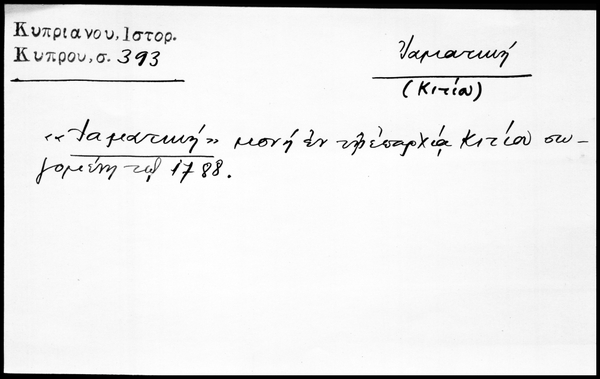 Κυπριανου, Ιστορ.
Κυπρου, σ. 393
Ἰαματική
(Κιτίου)
«Ἰαματική» μονή ἐν τῇ ἐπαρχίᾳ Κιτίου σω-
ζομένη τῷ 1788.